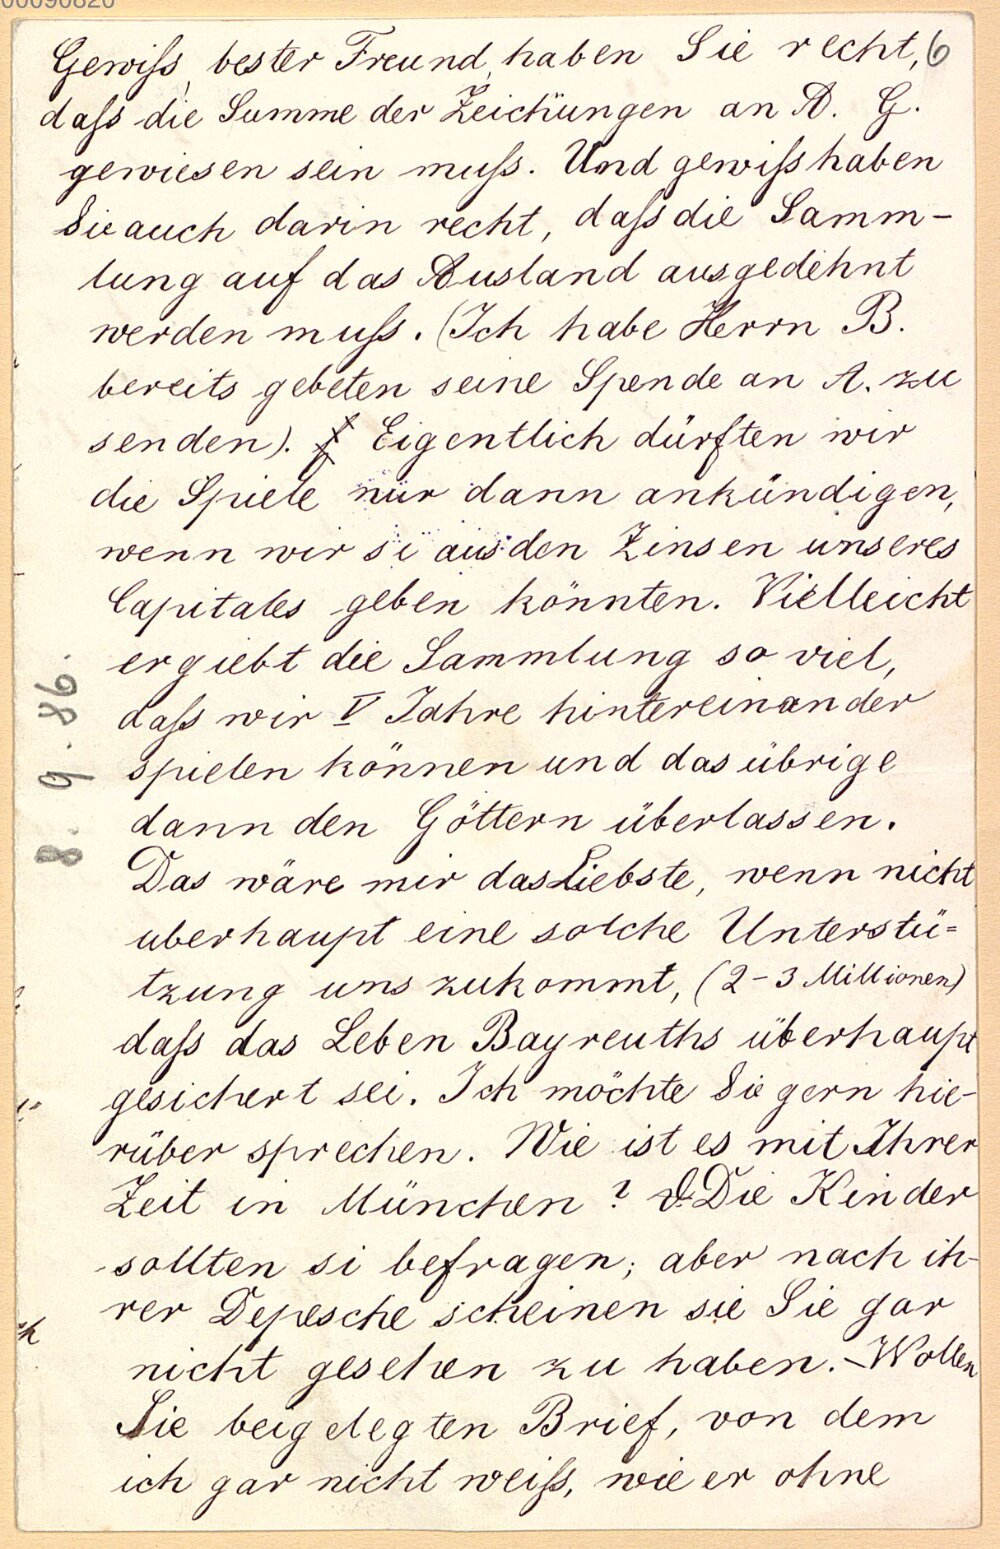 00090820
Gewiss, bester Freund, haben Sie recht, 6
dass die Summe der Zeichüngen an A. G.
gewiesen sein muss. Und gewiss haben
Sie auch darin recht, dass die Samm-
lung auf das Ausland ausgedehnt
werden muss. (Ich habe Herrn B.
bereits gebeten seine Spende an A. zu
senden). Eigentlich dürften wir
die Spiele nür dann ankündigen,
wenn wir si aus den Zinsen unseres
Capitales geben könnten. Vielleicht
ergiebt die Sammlung so viel,
dass wir V Jahre hintereinander
spielen können und das übrige
dann den Göttern überlassen.
Das wäre mir das Liebste, wenn nicht
uberhaupt eine solche Unterstü=
tzung uns zukommt, (2-3 Millionen)
dass das Leben Bayreuths überhaupt
gesichert sei. Ich möchte Sie gern hie-
rüber sprechen. Wie ist es mit Ihrer
Zeit in München? Die Kinder
sollten si befragen; aber nach ih-
rer Depesche scheinen sie Sie gar
nicht gesehen zu haben. - Wollen
Sie beigelegten Brief, von dem
ich gar nicht weiss, wie er ohne
8. 9. 86.